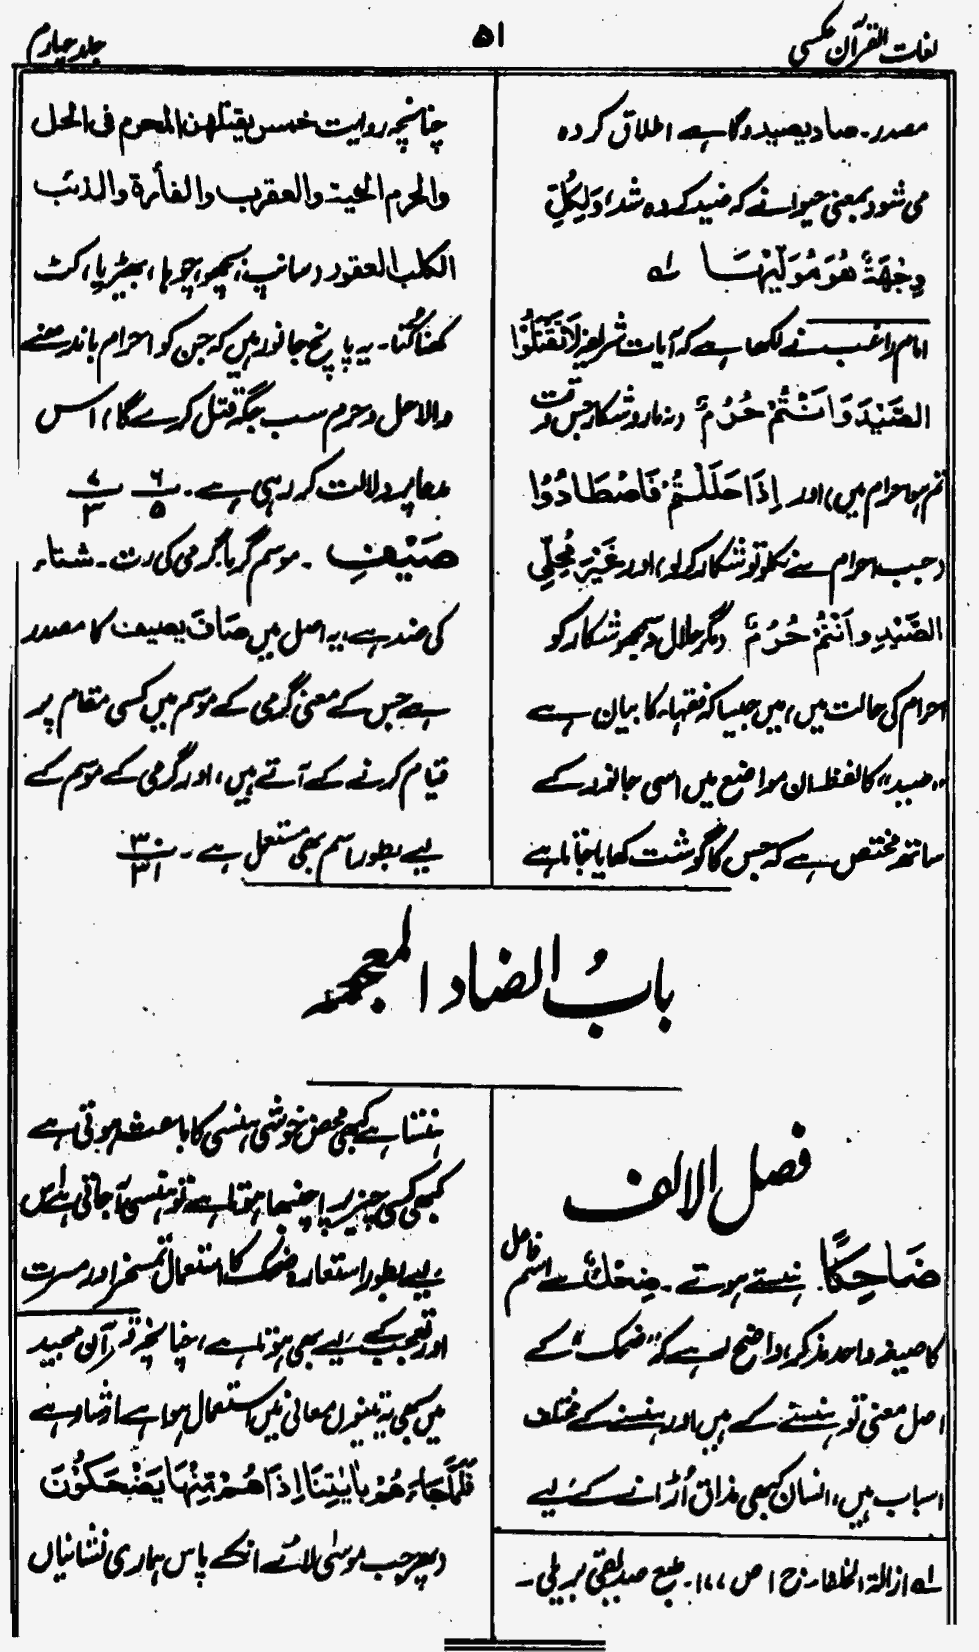 لغات القرآن عکسی
۵۱
جلد چہارم
مصدر۔ صاد یصید وگاہے اطلاق کردہ
می شود بمعنی حیوانے کہ صید کردہ شد، وَلِکُلٍّ
وِجْهَةٌ هُوَ مُوَلِّیْهَا لہ
امام راغب نے لکھا ہے کہ آیات شریفہ لَا تَقْتُلُوْا
الصَّیْدَ وَاَنْتُمْ حُرُمٌ (نہ مارو شکار جس وقت
تم ہو احرام میں) اور اِذَا حَلَلْتُمْ فَاصْطَادُوْا
(جب احرام سے نکلو تو شکار کرلو) اور غَیْرَ مُحِلِّی
الصَّیْدِ وَاَنْتُمْ حُرُمٌ (مگر حلال نہ سمجھو شکار کو
احرام کی حالت میں) میں جیسا کہ فقہاء کا بیان ہے
"صید" کا لفظ ان مواضع میں اسی جانور کے
ساتھ مختص ہے کہ جس کا گوشت کھایا جاتا ہے
چنانچہ روایت خمس یقتلهن المحرم فی الحل
والحرم الحیة والعقرب والفأرة والذئب
الکلب العقور (سانپ، بچھو، چوہا، بھیڑیا، کٹ
کھنا کُتا۔ یہ پانچ جانور ہیں کہ جن کو احرام باندھنے
والا حل و حرم سب جگہ قتل کرے گا) اس
مدعا پر دلالت کر رہی ہے۔ ۶/۵ ۷/۳
صَیْفِ ۔ موسم گرما، گرمی کی رت۔ شتاء
کی ضد ہے، یہ اصل میں صَافَ یصیف کا مصدر
ہے جس کے معنی گرمی کے موسم میں کسی مقام پر
قیام کرنے کے آتے ہیں، اور گرمی کے موسم کے
لیے بطور اسم بھی مستعمل ہے۔ ۳۰/۳۱
بابُ الضاد المعجمۃ
فصل الالف
ضَاحِکًا ہنستے ہوتے۔ ضِحْکٌ سے اسم فاعل
کا صیغہ واحد مذکر، واضح رہے کہ "ضحک" کے
اصل معنی تو ہنسنے کے ہیں اور ہنسنے کے مختلف
اسباب ہیں، انسان کبھی مذاق اُڑانے کے لیے
لہ ازالۃ الخلفاء ج ۱ ص ۱۷۷۔ طبع صدیقی بریلی۔
ہنستا ہے کبھی محض خوشی ہنسی کا باعث ہوتی ہے
کبھی کسی چیز پر اچنبھا ہوتا ہے تو ہنسی آجاتی ہے اس
لیے بطور استعارہ ضحک کا استعمال تمسخر اور مسرت
اور تعجب کے لیے بھی ہوتا ہے، چنانچہ قرآن مجید
میں بھی یہ تینوں معانی میں استعمال ہوا ہے ارشاد ہے
فَلَمَّا جَاءَهُمْ بِاٰیٰتِنَا اِذَا هُمْ مِّنْهَا یَضْحَکُوْنَ
(پھر جب موسیٰ لائے انکے پاس ہماری نشانیاں